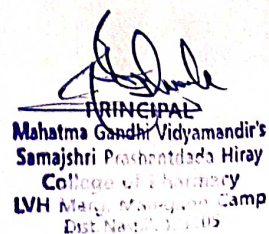 PRINCIPAL
Mahatma Gandhi Vidyamandir's
Samajshri Prashantdada Hiray
College of Pharmacy
LVH Marg, Camp
Dist.